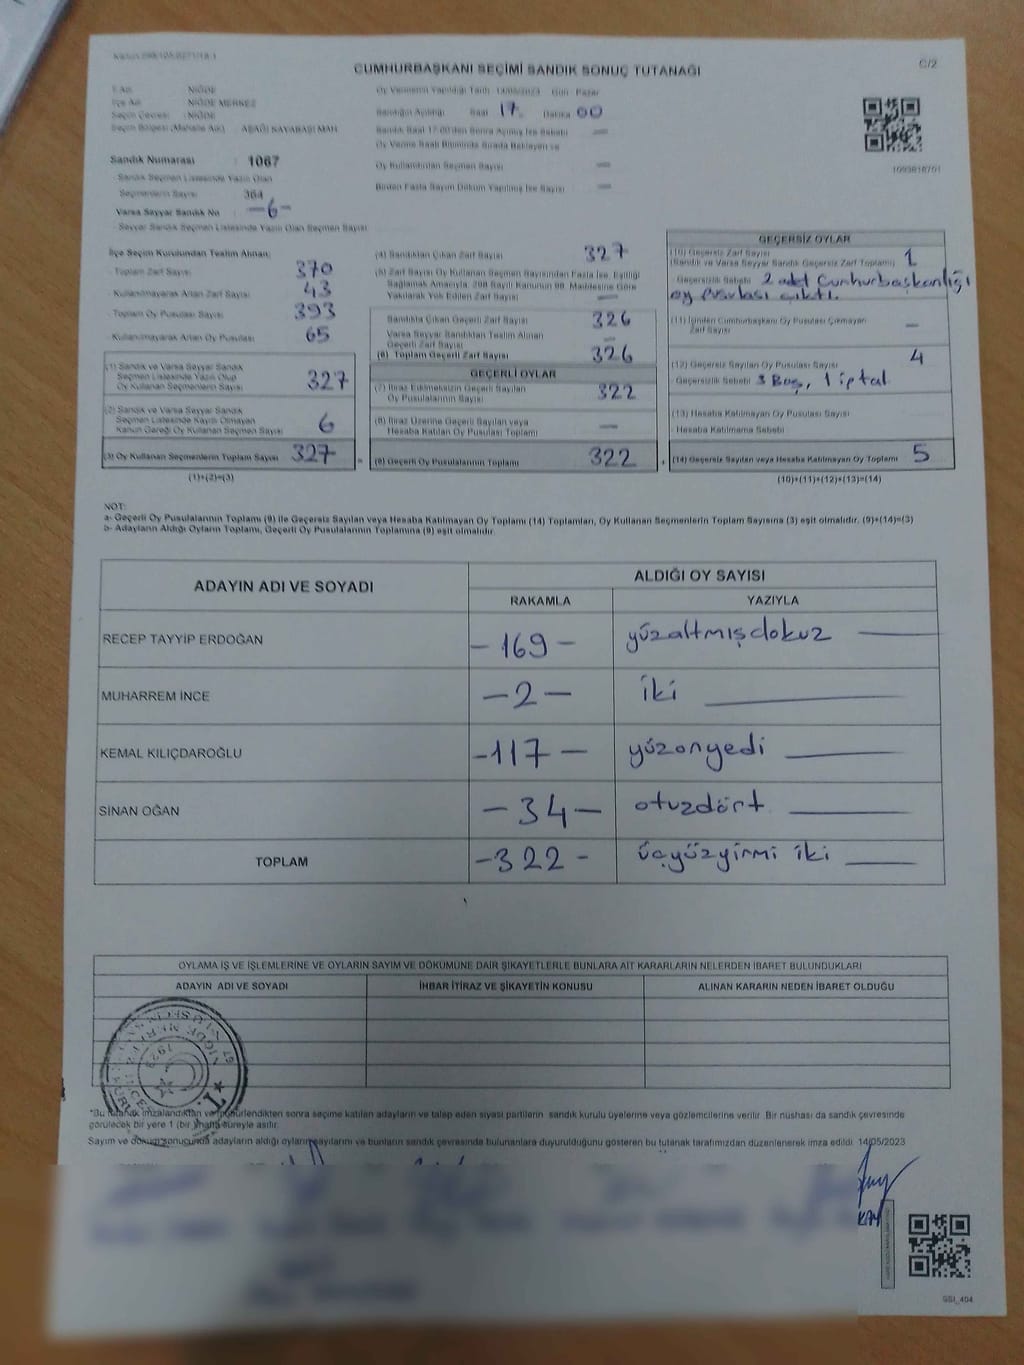 C/2
CUMHURBAŞKANI SEÇİMİ SANDIK SONUÇ TUTANAĞI
İl Adı : NİĞDE
İlçe Adı : NİĞDE MERKEZ
Seçim Çevresi : NİĞDE
Seçim Bölgesi (Mahalle Adı) : AŞAĞI KAYABAŞI MAH
Sandık Numarası : 1067
Sandık Seçmen Listesinde Yazılı Olan
Seçmenlerin Sayısı : 364
Varsa Seyyar Sandık No -6-
Seyyar Sandık Seçmen Listesinde Yazılı Olan Seçmen Sayısı
Oy Vermenin Yapıldığı Tarih : 14/05/2023 Gün : Pazar
Sandığın Açıldığı Saat 17. Dakika 00
Sandık Saat 17:00'den Sonra Açılmış İse Sebebi —
Oy Verme Saati Bitiminde Sırada Bekleyen ve
Oy Kullandırılan Seçmen Sayısı —
Birden Fazla Sayım Döküm Yapılmış İse Sayısı —
1093818701
İlçe Seçim Kurulundan Teslim Alınan;
Toplam Zarf Sayısı 370
Kullanılmayarak Artan Zarf Sayısı 43
Toplam Oy Pusulası Sayısı 393
Kullanılmayarak Artan Oy Pusulası 65
(1) Sandık ve Varsa Seyyar Sandık
Seçmen Listesinde Yazılı Olup
Oy Kullanan Seçmenlerin Sayısı 327
(2) Sandık ve Varsa Seyyar Sandık
Seçmen Listesinde Kayıtlı Olmayan
Kanun Gereği Oy Kullanan Seçmen Sayısı 6
(3) Oy Kullanan Seçmenlerin Toplam Sayısı 327
(1)+(2)=(3)
(4) Sandıktan Çıkan Zarf Sayısı 327
(5) Zarf Sayısı Oy Kullanan Seçmen Sayısından Fazla İse, Eşitliği
Sağlamak Amacıyla, 298 Sayılı Kanunun 98. Maddesine Göre
Yakılarak Yok Edilen Zarf Sayısı —
Sandıkta Çıkan Geçerli Zarf Sayısı 326
Varsa Seyyar Sandıktan Teslim Alınan
Geçerli Zarf Sayısı —
(6) Toplam Geçerli Zarf Sayısı 326
GEÇERLİ OYLAR
(7) İtiraz Edilmeksizin Geçerli Sayılan
Oy Pusulalarının Sayısı 322
(8) İtiraz Üzerine Geçerli Sayılan veya
Hesaba Katılan Oy Pusulası Toplamı —
(9) Geçerli Oy Pusulalarının Toplamı 322
GEÇERSİZ OYLAR
(10) Geçersiz Zarf Sayısı
(Sandık ve Varsa Seyyar Sandık Geçersiz Zarf Toplamı) 1
Geçersizlik Sebebi 2 adet Cumhurbaşkanlığı
oy pusulası çıktı.
(11) İçinden Cumhurbaşkanı Oy Pusulası Çıkmayan
Zarf Sayısı —
(12) Geçersiz Sayılan Oy Pusulası Sayısı 4
Geçersizlik Sebebi 3 Boş, 1 iptal
(13) Hesaba Katılmayan Oy Pusulası Sayısı
Hesaba Katılmama Sebebi
(14) Geçersiz Sayılan veya Hesaba Katılmayan Oy Toplamı 5
(10)+(11)+(12)+(13)=(14)
NOT:
a- Geçerli Oy Pusulalarının Toplamı (9) ile Geçersiz Sayılan veya Hesaba Katılmayan Oy Toplamı (14) Toplamları, Oy Kullanan Seçmenlerin Toplam Sayısına (3) eşit olmalıdır. (9)+(14)=(3)
b- Adayların Aldığı Oyların Toplamı, Geçerli Oy Pusulalarının Toplamına (9) eşit olmalıdır.
ADAYIN ADI VE SOYADI
ALDIĞI OY SAYISI
RAKAMLA YAZIYLA
RECEP TAYYİP ERDOĞAN -169- yüzaltmışdokuz
MUHARREM İNCE -2- iki
KEMAL KILIÇDAROĞLU -117- yüzonyedi
SİNAN OĞAN -34- otuzdört
TOPLAM -322- üçyüzyirmi iki
OYLAMA İŞ VE İŞLEMLERİNE VE OYLARIN SAYIM VE DÖKÜMÜNE DAİR ŞİKAYETLERLE BUNLARA AİT KARARLARIN NELERDEN İBARET BULUNDUKLARI
ADAYIN ADI VE SOYADI İHBAR İTİRAZ VE ŞİKAYETİN KONUSU ALINAN KARARIN NEDEN İBARET OLDUĞU
*Bu tutanak imzalandıktan ve mühürlendikten sonra seçime katılan adayların ve talep eden siyasi partilerin sandık kurulu üyelerine veya gözlemcilerine verilir. Bir nüshası da sandık çevresinde
görülecek bir yere 1 (bir) hafta süreyle asılır.
Sayım ve döküm sonucunda adayların aldığı oyların sayılarını ve bunların sandık çevresinde bulunanlara duyurulduğunu gösteren bu tutanak tarafımızdan düzenlenerek imza edildi. 14/05/2023
SSI_404